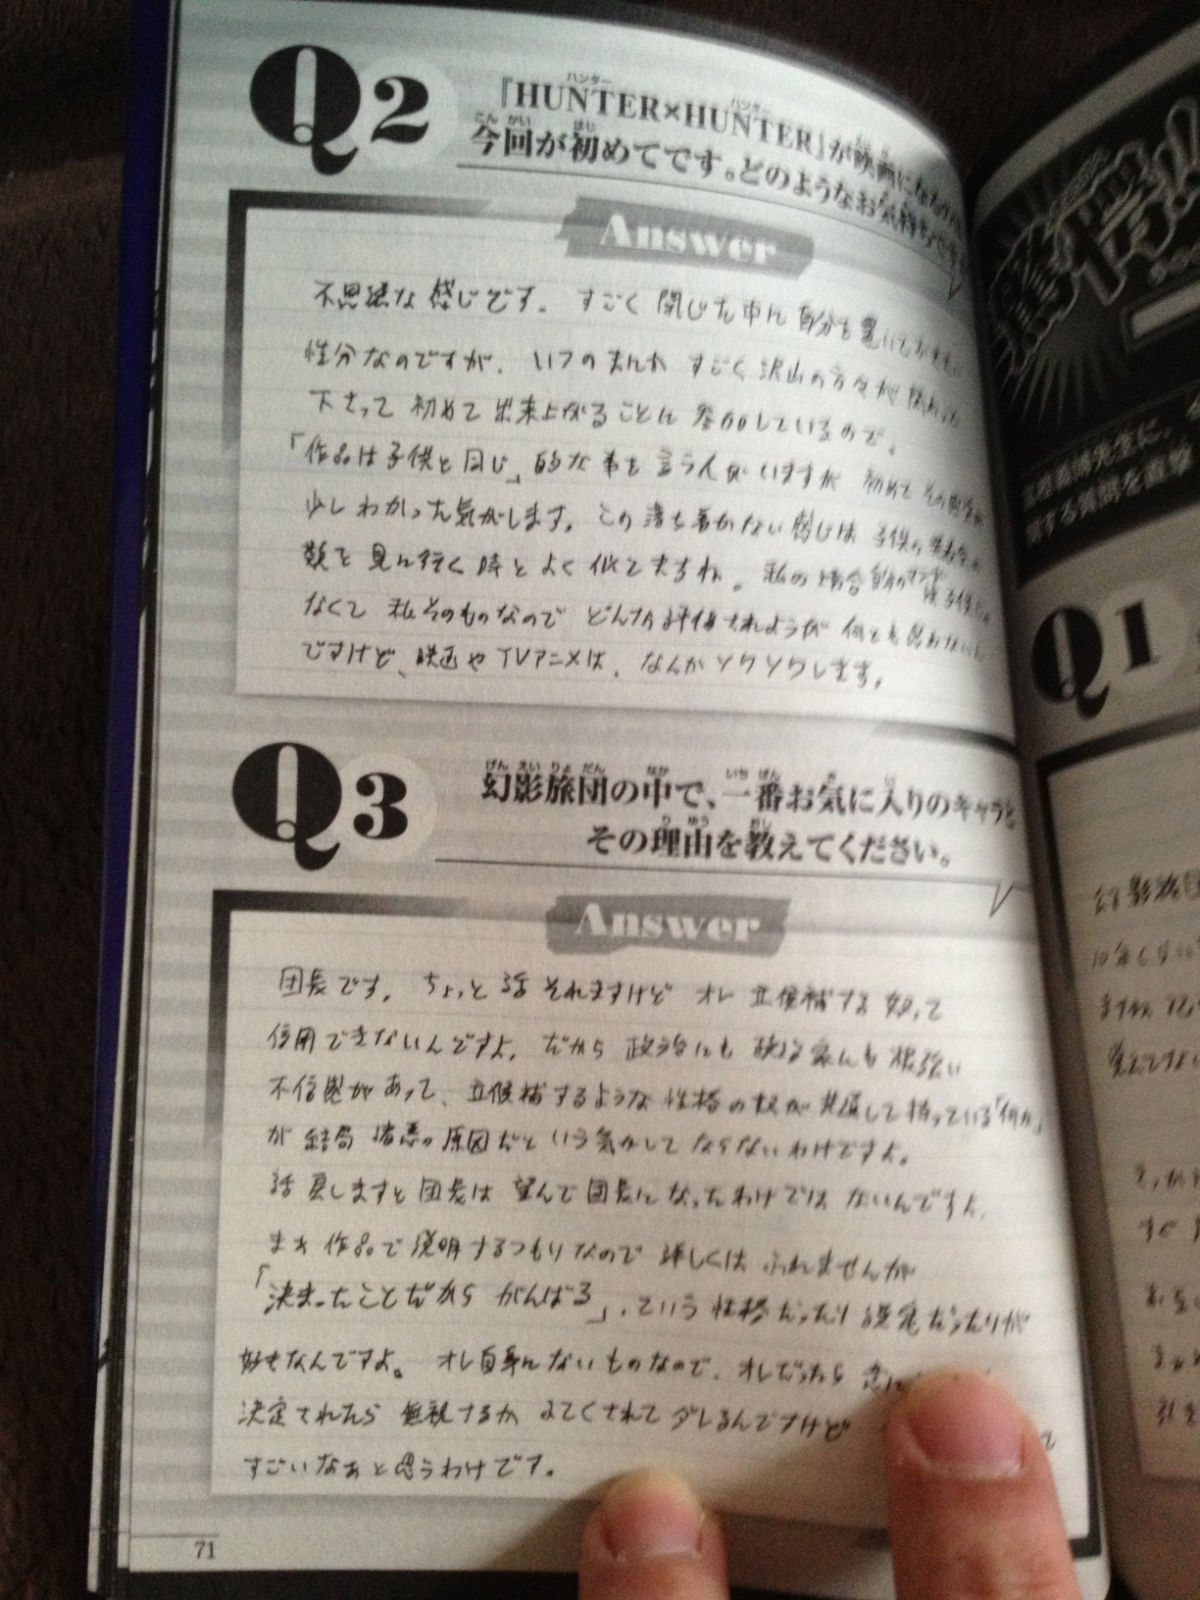 Q2
『HUNTER×HUNTER』が映画になる
今回が初めてです。どのようなお気持ちです
Answer
不思議な感じです。すごく閉じた中に自分を置いておきたい
性分なのですが、いつのまにか すごく沢山の方々が関わって
下さって 初めて出来上がることに参加しているので。
「作品は子供と同じ」的な事を言う人がいますが 初めてその
少しわかった気がします。この落ち着かない感じは 子供の
類を見に行く時とよく似てますね。私の場合自分のマンガは子供じゃ
なくて 私そのものなので どんな評価されようが 何とも思わない
ですけど、映画やTVアニメは、なんかソワソワします。
Q3
幻影旅団の中で、一番お気に入りのキャラと
その理由を教えてください。
Answer
団長です。ちょっと話それますけど オレ 立候補する奴って
信用できないんですよ。だから政治にも政治家にも根強い
不信感があって、立候補するような性格の奴が共通して持っている「何か」
が結局 諸悪の原因だという気がしてならないわけですよ。
話戻しますと団長は望んで団長になったわけではないんですよ。
まぁ作品で説明するつもりなので 詳しくはふれませんが
「決まったことだから がんばる」、という性格だったり 設定だったりが
好きなんですよ。オレ自身にないものなので、オレだったら
決定されたら 無視するか ふてくされてダレるんですけど
すごいなぁと思うわけです。
71
Q1